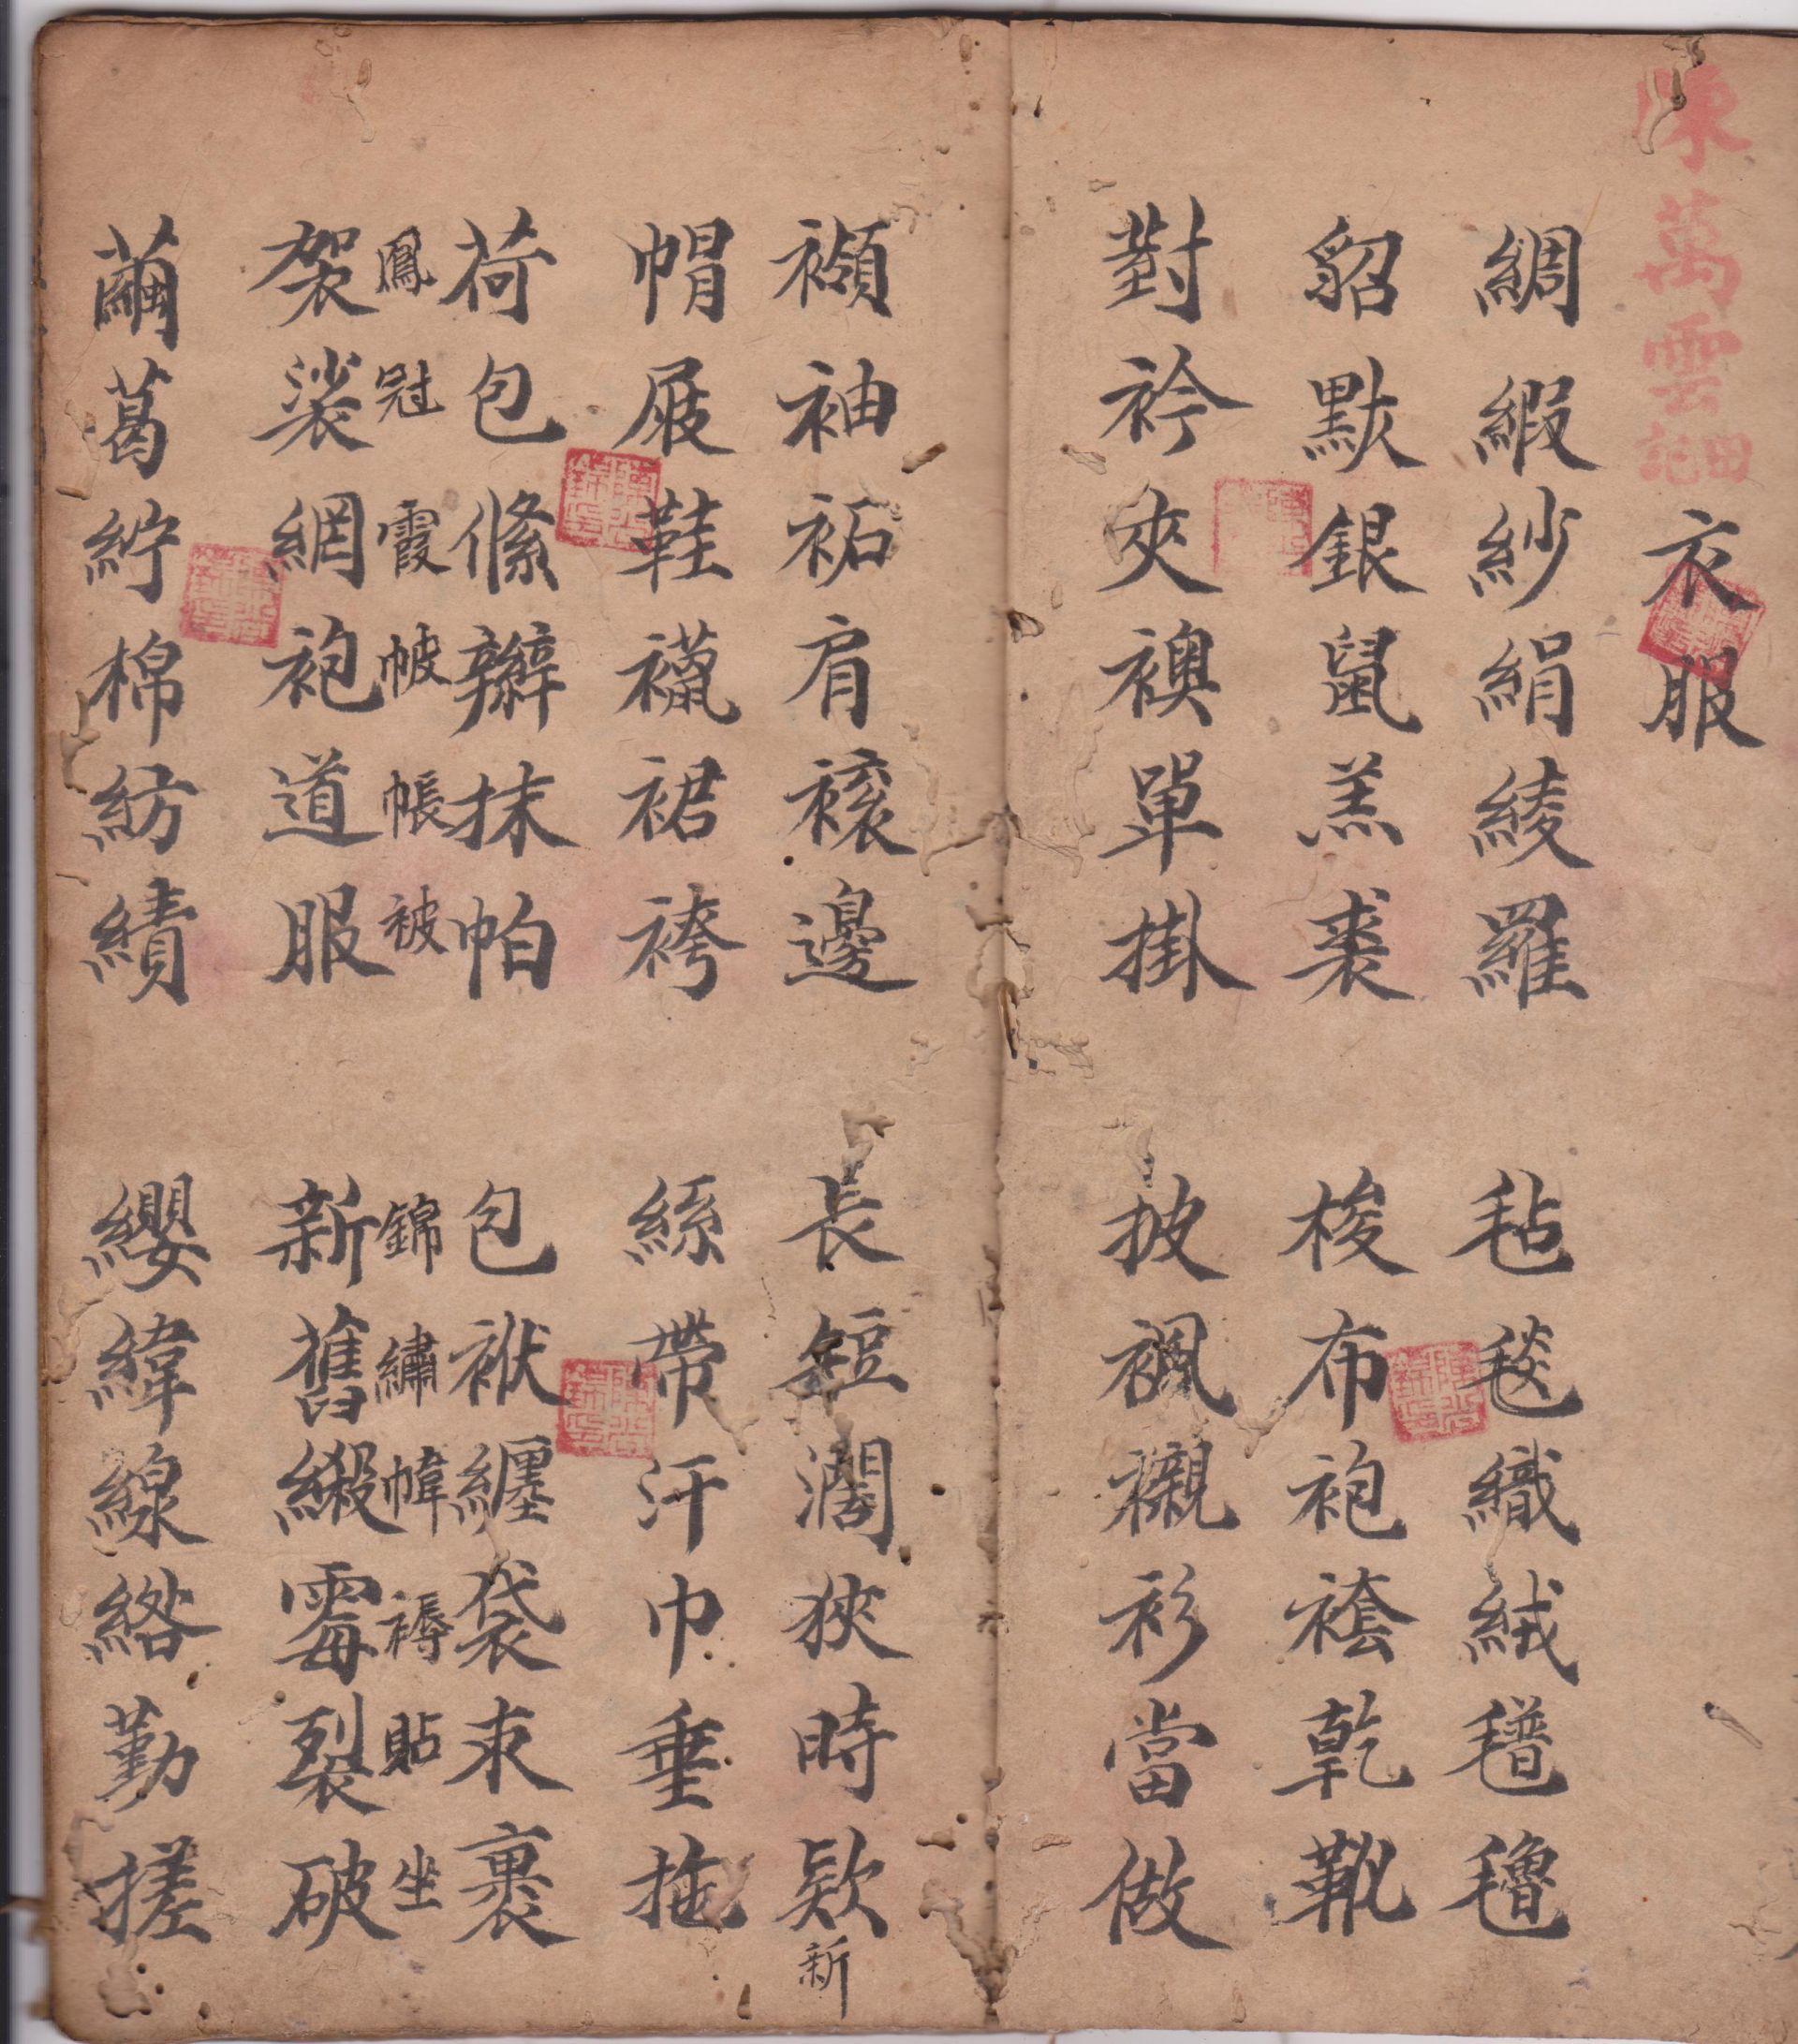 陳萬雲田記
衣服
綢緞紗絹綾羅 毡毯織絨氆氇
貂默銀鼠羔裘 梭布袍套乾靴
對衿夾襖單掛 披襯衫當做
袖袥肩褑邊 長短濶狹時款新
帽屐鞋襪裙袴 絲帶汗巾垂拖
荷包絛辮抹帕 包袱纏袋束裹
鳳冠霞帔帳被 錦繡幃褥貼坐
袈裟網袍道服 新舊緞霉裂破
繭葛紵棉紡績 纓緯線綹勤搓